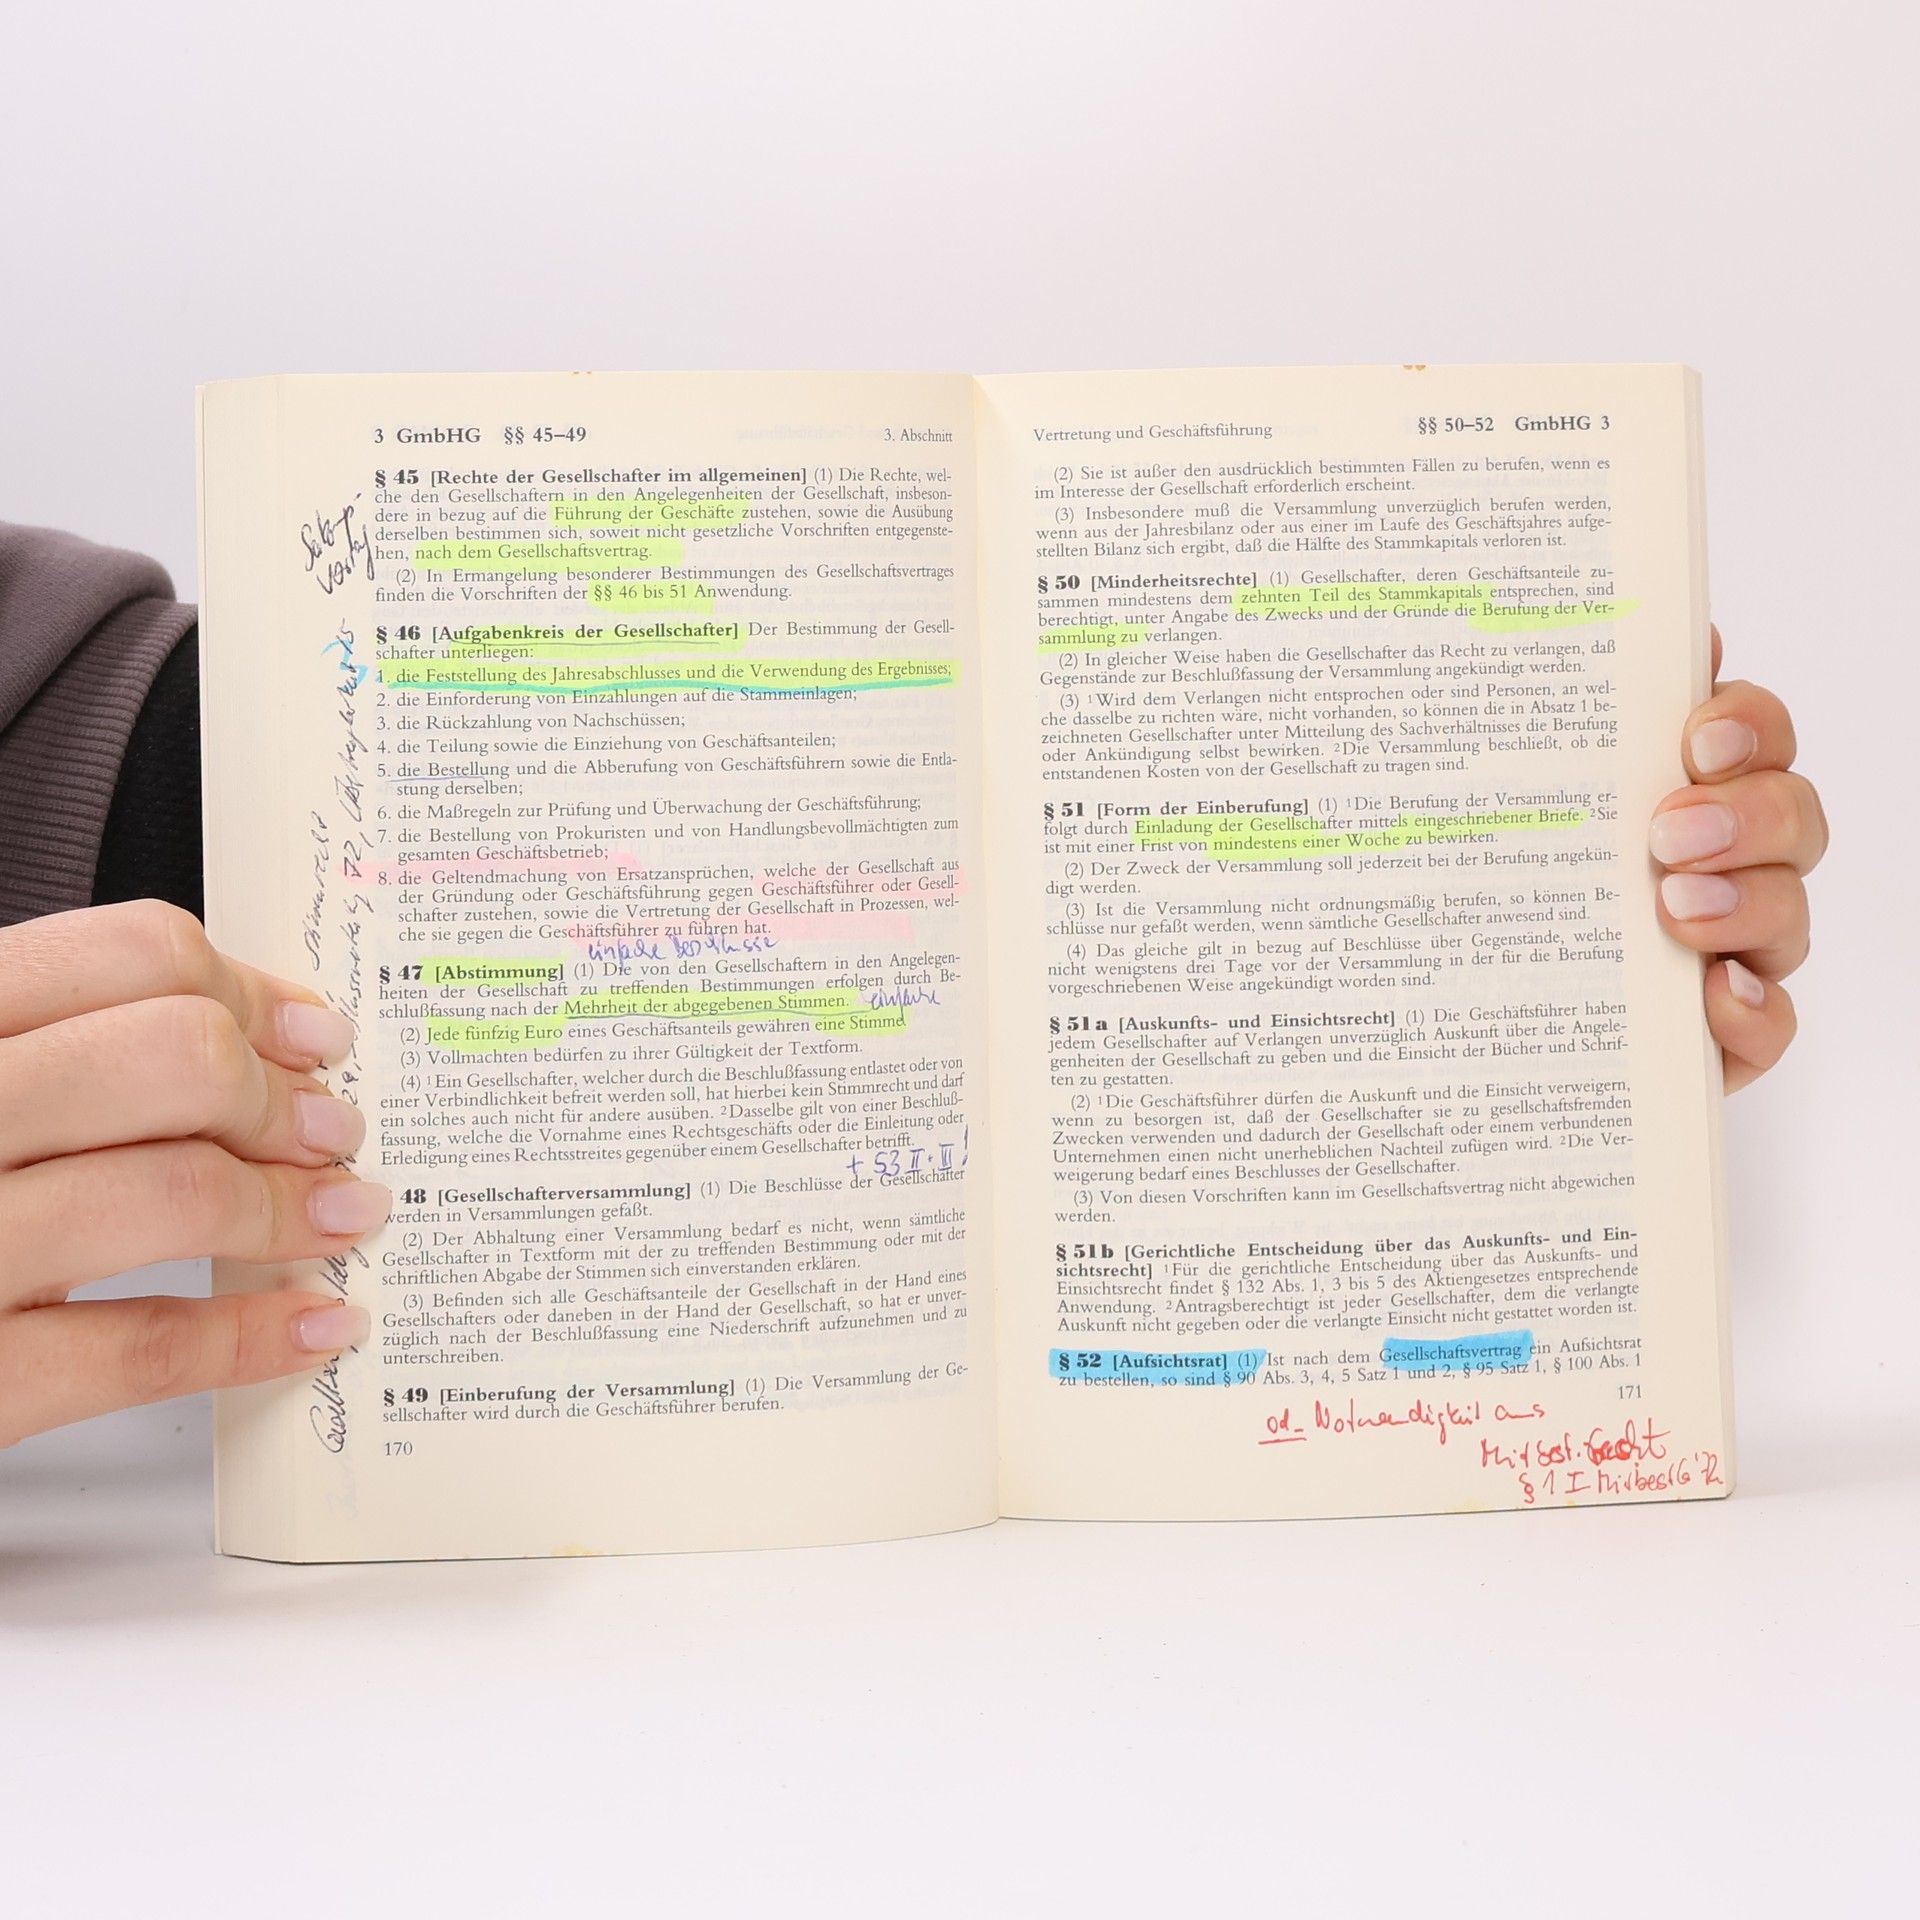 3 GmbHG §§ 45–49 3. Abschnitt
§ 45 [Rechte der Gesellschafter im allgemeinen] (1) Die Rechte, wel-
che den Gesellschaftern in den Angelegenheiten der Gesellschaft, insbeson-
dere in bezug auf die Führung der Geschäfte zustehen, sowie die Ausübung
derselben bestimmen sich, soweit nicht gesetzliche Vorschriften entgegenste-
hen, nach dem Gesellschaftsvertrag.
(2) In Ermangelung besonderer Bestimmungen des Gesellschaftsvertrages
finden die Vorschriften der §§ 46 bis 51 Anwendung.
§ 46 [Aufgabenkreis der Gesellschafter] Der Bestimmung der Gesell-
schafter unterliegen:
1. die Feststellung des Jahresabschlusses und die Verwendung des Ergebnisses;
2. die Einforderung von Einzahlungen auf die Stammeinlagen;
3. die Rückzahlung von Nachschüssen;
4. die Teilung sowie die Einziehung von Geschäftsanteilen;
5. die Bestellung und die Abberufung von Geschäftsführern sowie die Entla-
stung derselben;
6. die Maßregeln zur Prüfung und Überwachung der Geschäftsführung;
7. die Bestellung von Prokuristen und von Handlungsbevollmächtigten zum
gesamten Geschäftsbetrieb;
8. die Geltendmachung von Ersatzansprüchen, welche der Gesellschaft aus
der Gründung oder Geschäftsführung gegen Geschäftsführer oder Gesell-
schafter zustehen, sowie die Vertretung der Gesellschaft in Prozessen, wel-
che sie gegen die Geschäftsführer zu führen hat.
einfache Beschlüsse
§ 47 [Abstimmung] (1) Die von den Gesellschaftern in den Angelegen-
heiten der Gesellschaft zu treffenden Bestimmungen erfolgen durch Be-
schlußfassung nach der Mehrheit der abgegebenen Stimmen. einfache
(2) Jede fünfzig Euro eines Geschäftsanteils gewähren eine Stimme.
(3) Vollmachten bedürfen zu ihrer Gültigkeit der Textform.
(4) ¹Ein Gesellschafter, welcher durch die Beschlußfassung entlastet oder von
einer Verbindlichkeit befreit werden soll, hat hierbei kein Stimmrecht und darf
ein solches auch nicht für andere ausüben. ²Dasselbe gilt von einer Beschluß-
fassung, welche die Vornahme eines Rechtsgeschäfts oder die Einleitung oder
Erledigung eines Rechtsstreites gegenüber einem Gesellschafter betrifft.
+ 53 II + III !
48 [Gesellschafterversammlung] (1) Die Beschlüsse der Gesellschafter
werden in Versammlungen gefaßt.
(2) Der Abhaltung einer Versammlung bedarf es nicht, wenn sämtliche
Gesellschafter in Textform mit der zu treffenden Bestimmung oder mit der
schriftlichen Abgabe der Stimmen sich einverstanden erklären.
(3) Befinden sich alle Geschäftsanteile der Gesellschaft in der Hand eines
Gesellschafters oder daneben in der Hand der Gesellschaft, so hat er unver-
züglich nach der Beschlußfassung eine Niederschrift aufzunehmen und zu
unterschreiben.
§ 49 [Einberufung der Versammlung] (1) Die Versammlung der Ge-
sellschafter wird durch die Geschäftsführer berufen.
170
Vertretung und Geschäftsführung §§ 50–52 GmbHG 3
(2) Sie ist außer den ausdrücklich bestimmten Fällen zu berufen, wenn es
im Interesse der Gesellschaft erforderlich erscheint.
(3) Insbesondere muß die Versammlung unverzüglich berufen werden,
wenn aus der Jahresbilanz oder aus einer im Laufe des Geschäftsjahres aufge-
stellten Bilanz sich ergibt, daß die Hälfte des Stammkapitals verloren ist.
§ 50 [Minderheitsrechte] (1) Gesellschafter, deren Geschäftsanteile zu-
sammen mindestens dem zehnten Teil des Stammkapitals entsprechen, sind
berechtigt, unter Angabe des Zwecks und der Gründe die Berufung der Ver-
sammlung zu verlangen.
(2) In gleicher Weise haben die Gesellschafter das Recht zu verlangen, daß
Gegenstände zur Beschlußfassung der Versammlung angekündigt werden.
(3) ¹Wird dem Verlangen nicht entsprochen oder sind Personen, an wel-
che dasselbe zu richten wäre, nicht vorhanden, so können die in Absatz 1 be-
zeichneten Gesellschafter unter Mitteilung des Sachverhältnisses die Berufung
oder Ankündigung selbst bewirken. ²Die Versammlung beschließt, ob die
entstandenen Kosten von der Gesellschaft zu tragen sind.
§ 51 [Form der Einberufung] (1) ¹Die Berufung der Versammlung er-
folgt durch Einladung der Gesellschafter mittels eingeschriebener Briefe. ²Sie
ist mit einer Frist von mindestens einer Woche zu bewirken.
(2) Der Zweck der Versammlung soll jederzeit bei der Berufung angekün-
digt werden.
(3) Ist die Versammlung nicht ordnungsmäßig berufen, so können Be-
schlüsse nur gefaßt werden, wenn sämtliche Gesellschafter anwesend sind.
(4) Das gleiche gilt in bezug auf Beschlüsse über Gegenstände, welche
nicht wenigstens drei Tage vor der Versammlung in der für die Berufung
vorgeschriebenen Weise angekündigt worden sind.
§ 51a [Auskunfts- und Einsichtsrecht] (1) Die Geschäftsführer haben
jedem Gesellschafter auf Verlangen unverzüglich Auskunft über die Angele-
genheiten der Gesellschaft zu geben und die Einsicht der Bücher und Schrif-
ten zu gestatten.
(2) ¹Die Geschäftsführer dürfen die Auskunft und die Einsicht verweigern,
wenn zu besorgen ist, daß der Gesellschafter sie zu gesellschaftsfremden
Zwecken verwenden und dadurch der Gesellschaft oder einem verbundenen
Unternehmen einen nicht unerheblichen Nachteil zufügen wird. ²Die Ver-
weigerung bedarf eines Beschlusses der Gesellschafter.
(3) Von diesen Vorschriften kann im Gesellschaftsvertrag nicht abgewichen
werden.
§ 51b [Gerichtliche Entscheidung über das Auskunfts- und Ein-
sichtsrecht] ¹Für die gerichtliche Entscheidung über das Auskunfts- und
Einsichtsrecht findet § 132 Abs. 1, 3 bis 5 des Aktiengesetzes entsprechende
Anwendung. ²Antragsberechtigt ist jeder Gesellschafter, dem die verlangte
Auskunft nicht gegeben oder die verlangte Einsicht nicht gestattet worden ist.
§ 52 [Aufsichtsrat] (1) Ist nach dem Gesellschaftsvertrag ein Aufsichtsrat
zu bestellen, so sind § 90 Abs. 3, 4, 5 Satz 1 und 2, § 95 Satz 1, § 100 Abs. 1
171
od. Notwendigkeit aus
Mitbest.recht
§ 1 I MitbestG '72